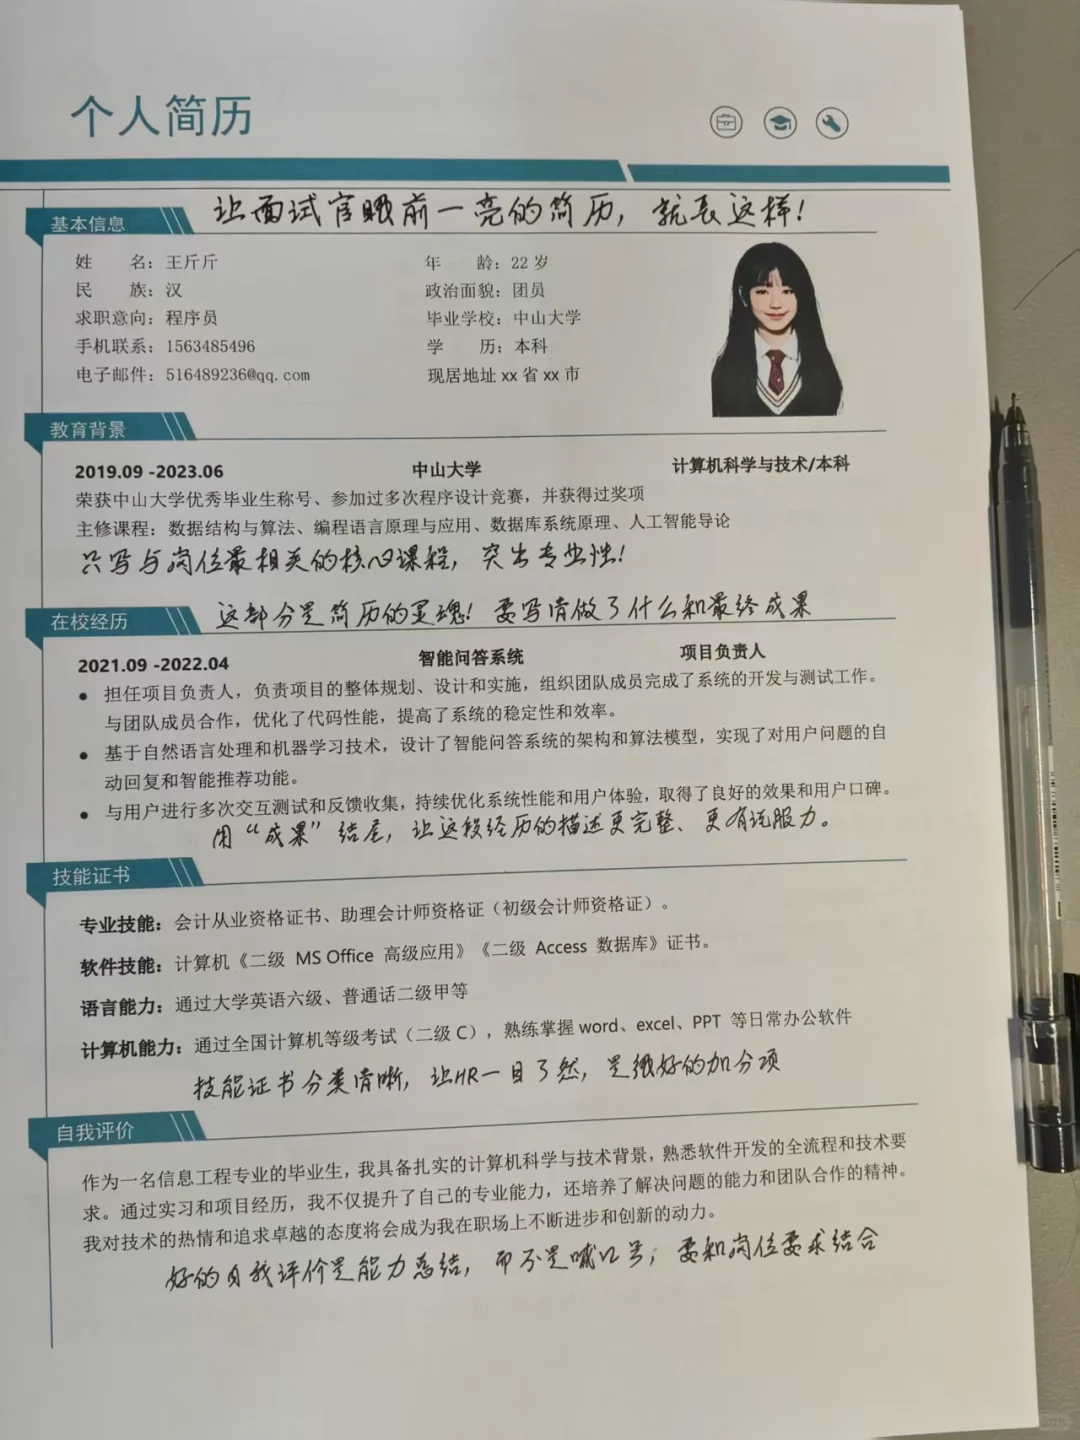 个人简历
让面试官眼前一亮的简历，就长这样！
基本信息
姓 名：王斤斤
年 龄：22 岁
民 族：汉
政治面貌：团员
求职意向：程序员
毕业学校：中山大学
手机联系：1563485496
学 历：本科
电子邮件：516489236@qq.com
现居地址 xx 省 xx 市
教育背景
2019.09 -2023.06 中山大学 计算机科学与技术/本科
荣获中山大学优秀毕业生称号、参加过多次程序设计竞赛，并获得过奖项
主修课程：数据结构与算法、编程语言原理与应用、数据库系统原理、人工智能导论
只写与岗位最相关的核心课程，突出专业性！
在校经历
这部分是简历的灵魂！要写清做了什么和最终成果
2021.09 -2022.04 智能问答系统 项目负责人
● 担任项目负责人，负责项目的整体规划、设计和实施，组织团队成员完成了系统的开发与测试工作。
与团队成员合作，优化了代码性能，提高了系统的稳定性和效率。
● 基于自然语言处理和机器学习技术，设计了智能问答系统的架构和算法模型，实现了对用户问题的自
动回复和智能推荐功能。
● 与用户进行多次交互测试和反馈收集，持续优化系统性能和用户体验，取得了良好的效果和用户口碑。
用“成果”结尾，让这段经历的描述更完整、更有说服力。
技能证书
专业技能：会计从业资格证书、助理会计师资格证（初级会计师资格证）。
软件技能：计算机《二级 MS Office 高级应用》《二级 Access 数据库》证书。
语言能力：通过大学英语六级、普通话二级甲等
计算机能力：通过全国计算机等级考试（二级 C），熟练掌握 word、excel、PPT 等日常办公软件
技能证书分类清晰，让HR一目了然，是很好的加分项
自我评价
作为一名信息工程专业的毕业生，我具备扎实的计算机科学与技术背景，熟悉软件开发的全流程和技术要
求。通过实习和项目经历，我不仅提升了自己的专业能力，还培养了解决问题的能力和团队合作的精神。
我对技术的热情和追求卓越的态度将会成为我在职场上不断进步和创新的动力。
好的自我评价是能力总结，而不是喊口号；要和岗位要求结合